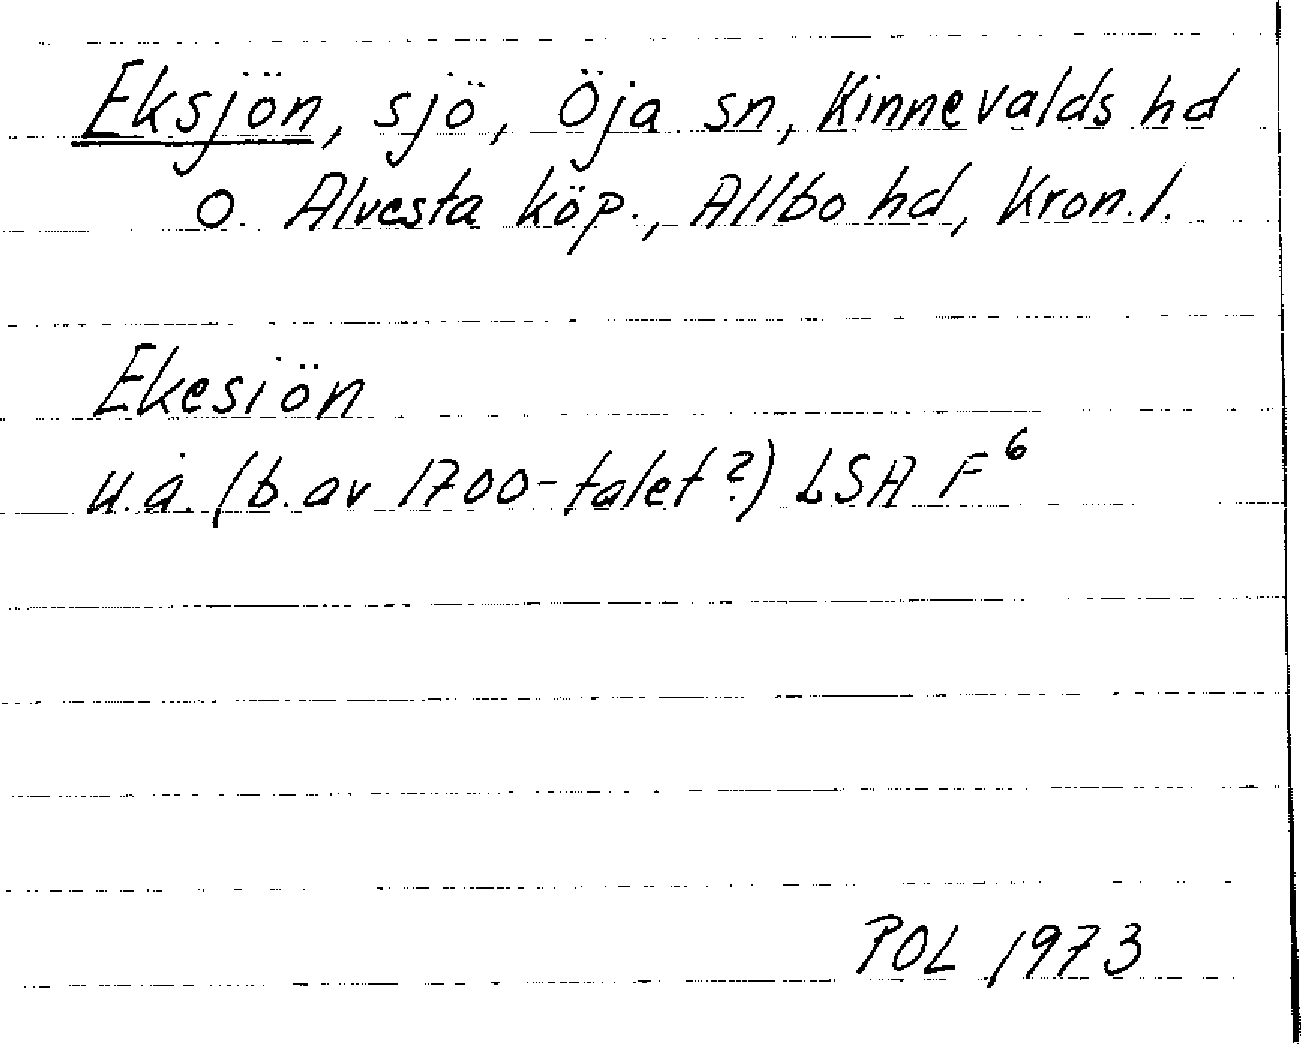 Eksjön, sjö, Öja sn, Kinnevalds hd
o. Alvesta köp., Allbo hd, Kron.l.
Ekesiön
u.å. (b. av 1700-talet?) LSA F⁶
POL 1973